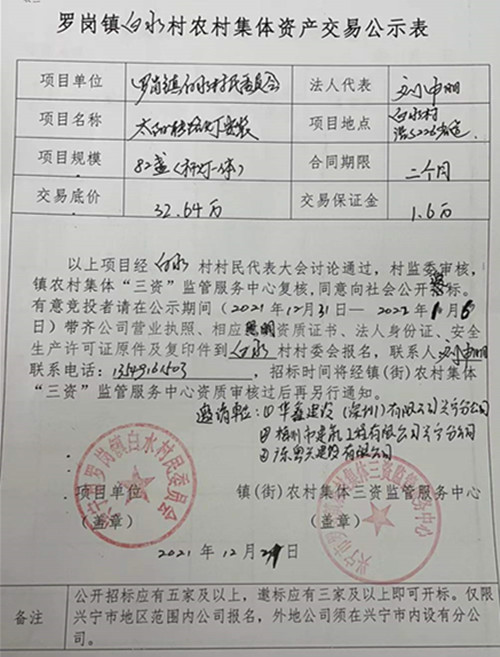 罗岗镇白水村农村集体资产交易公示表
项目单位 罗岗镇白水村民委员会 法人代表 刘小中明
项目名称 太阳能路灯安装 项目地点 白水村沿S226省道
项目规模 82盏(杆灯一体) 合同期限 二个月
交易底价 32.64万 交易保证金 1.6万
以上项目经白水村村民代表大会讨论通过，村监委审核，
镇农村集体“三资”监管服务中心复核，同意向社会公开招标。
有意竞投者请在公示期间（2021年12月31日—2022年1月6
日）带齐公司营业执照、相应照明资质证书、法人身份证、安全
生产许可证原件及复印件到白水村村委会报名，联系人
联系电话：13549161503，招标时间将经镇(街)农村集体
“三资”监管服务中心资质审核过后再另行通知。
邀请单位：①华鑫建设(深圳)有限公司兴宁分公司
②梅州市建筑工程有限公司兴宁分公司
③广东粤兴建设有限公司
项目单位 镇(街)农村集体三资监管服务中心
（盖章） （盖章）
兴宁市罗岗镇白水村民委员会
2021年12月 日
备注 公开招标应有五家及以上，邀标应有三家及以上即可开标。仅限
兴宁市地区范围内公司报名，外地公司须在兴宁市内设有分公
司。